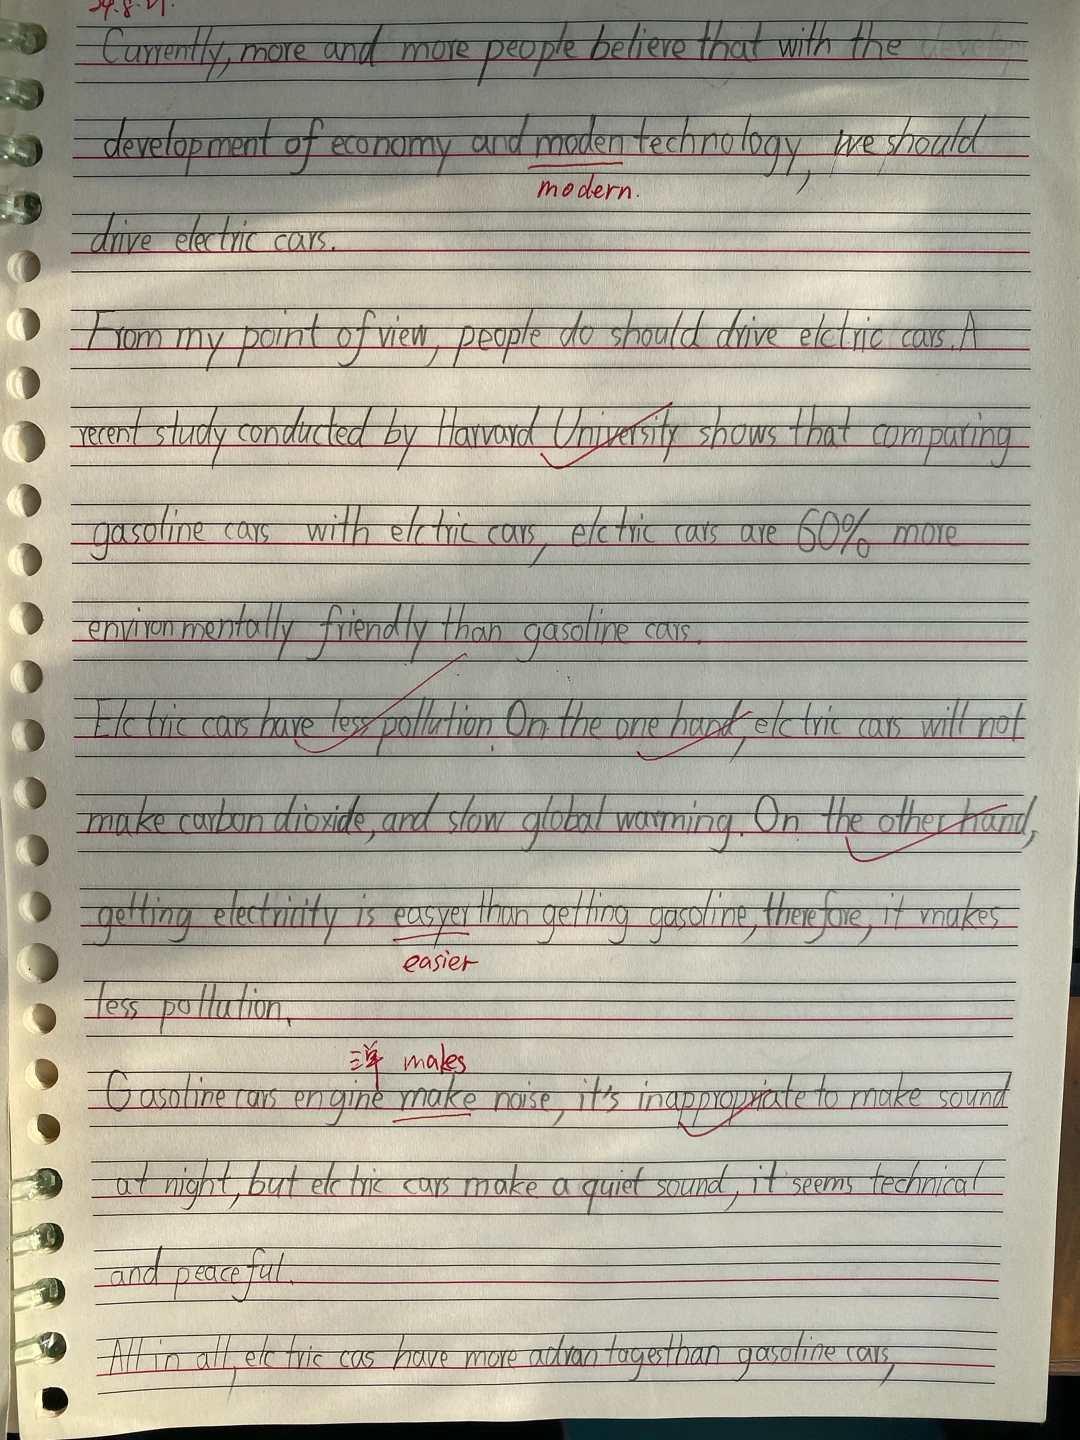 Currently, more and more people believe that with the
development of economy and moden technology, we should
modern.
drive electric cars.
From my point of view, people do should drive elctric cars. A
recent study conducted by Harvard University shows that comparing
gasoline cars with elctric cars, elctric cars are 60% more
environmentally friendly than gasoline cars.
Elctric cars have less pollution. On the one hand, elctric cars will not
make carbon dioxide, and slow global warming. On the other hand,
getting electricity is easyer than getting gasoline, therefore, it makes
easier
less pollution.
三单 makes
Gasoline cars engine make noise, it's inappropriate to make sound
at night, but elctric cars make a quiet sound, it seems technical
and peaceful.
All in all, elctric cas have more advantages than gasoline cars,